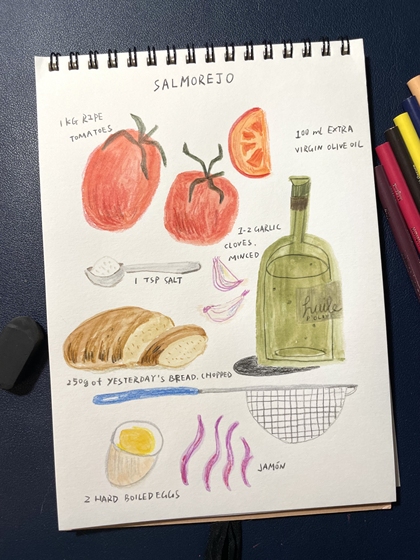 SALMOREJO
1 KG RIPE
TOMATOES
100 ml EXTRA
VIRGIN OLIVE OIL
1-2 GARLIC
CLOVES,
MINCED
1 TSP SALT
huile
D'OLIVE
250g of YESTERDAY'S BREAD, CHOPPED
JAMÓN
2 HARD BOILED EGGS